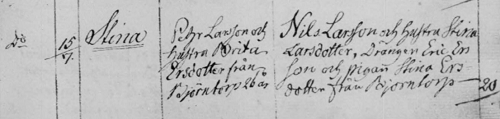 Do 15/7 Stina Pehr Larsson och Nils Larsson och hustru Stina
hustru Brita Larsdotter, Drängen Eric Ers
Ersdotter från son och pigan Stina Ers
Björntorp dotter från Björntorp 20